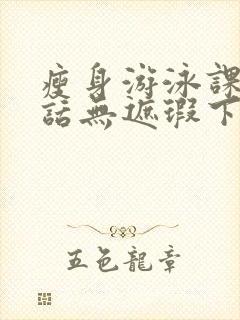 瘦身游泳課
話無遮瑕下
五色龍章